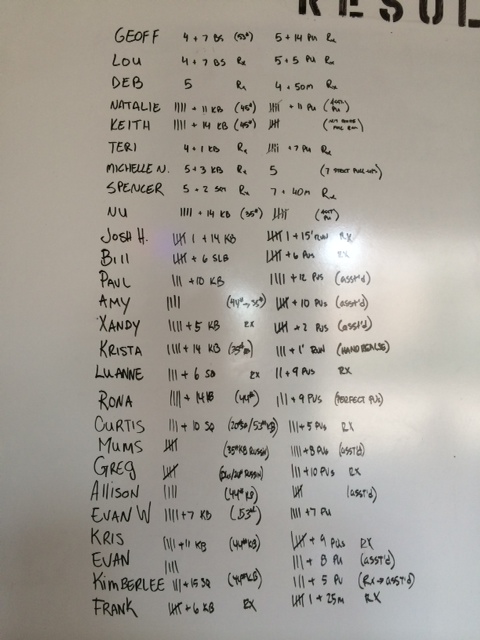 RESUL
GEOFF 4 + 7 BS (53#) 5 + 14 PU Rx
LOU 4 + 7 BS Rx 5 + 5 PU Rx
DEB 5 Rx 4 + 50m Rx
NATALIE |||| + 11 KB (45#) + 11 PU
KEITH |||| + 14 KB (45#) 卌
TERI 4 + 1 KB Rx + 7 PU Rx
MICHELLE N. 5 + 3 KB Rx 5 (7 STRICT PULL-UPS)
SPENCER 5 + 2 Rx 7 + 40m Rx
NU |||| + 14 KB (35#)
JOSH H. 卌 | + 14 KB 卌 | + 15' RUN RX
BILL 卌 + 6 SLB 卌 + 6 PUs RX
PAUL ||| + 10 KB |||| + 12 PUs (asst'd)
AMY |||| 卌 + 10 PUs (asst'd)
XANDY |||| + 5 KB RX 卌 + 2 PUs (asst'd)
KRISTA |||| + 14 KB ||| + 1' RUN
LUANNE ||| + 6 SQ RX || + 9 PUs RX
RONA |||| + 14 KB (44#) ||| + 9 PUs (PERFECT PUs)
CURTIS ||| + 10 SQ |||| + 5 PUs RX
MUMS 卌 (35# KB RUSSIAN) |||| + 8 PUs (asst'd)
GREG 卌 ||| + 10 PUs RX
ALLISON |||| (44# KB) 卌 (asst'd)
EVAN W |||| + 7 KB (53#) |||| + 7 PU
KRIS |||| + 11 KB (44# KB) 卌 + 9 PUs RX
EVAN |||| ||| + 8 PU (asst'd)
KIMBERLEE ||| + 15 SQ (44# KB) ||| + 5 PU (Rx → asst'd)
FRANK 卌 + 6 KB RX 卌 | + 25m RX